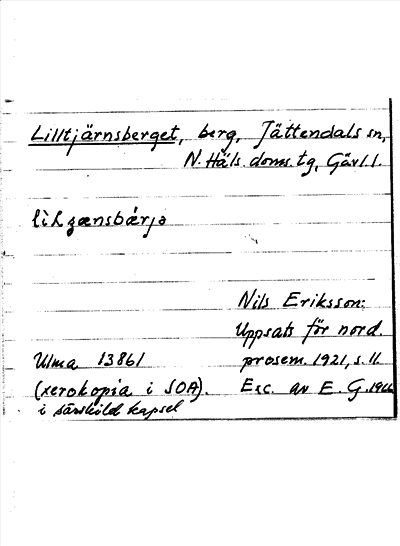 Lilltjärnsberget, berg, Jättendals sn,
N. Häls. doms. tg, Gävl. l.
Nils Eriksson:
Uppsats för nord.
Ulma 13861 prosem. 1921, s. 11.
(xerokopia i SOA). Exc. av E. G. 1966
i särskild kapsel